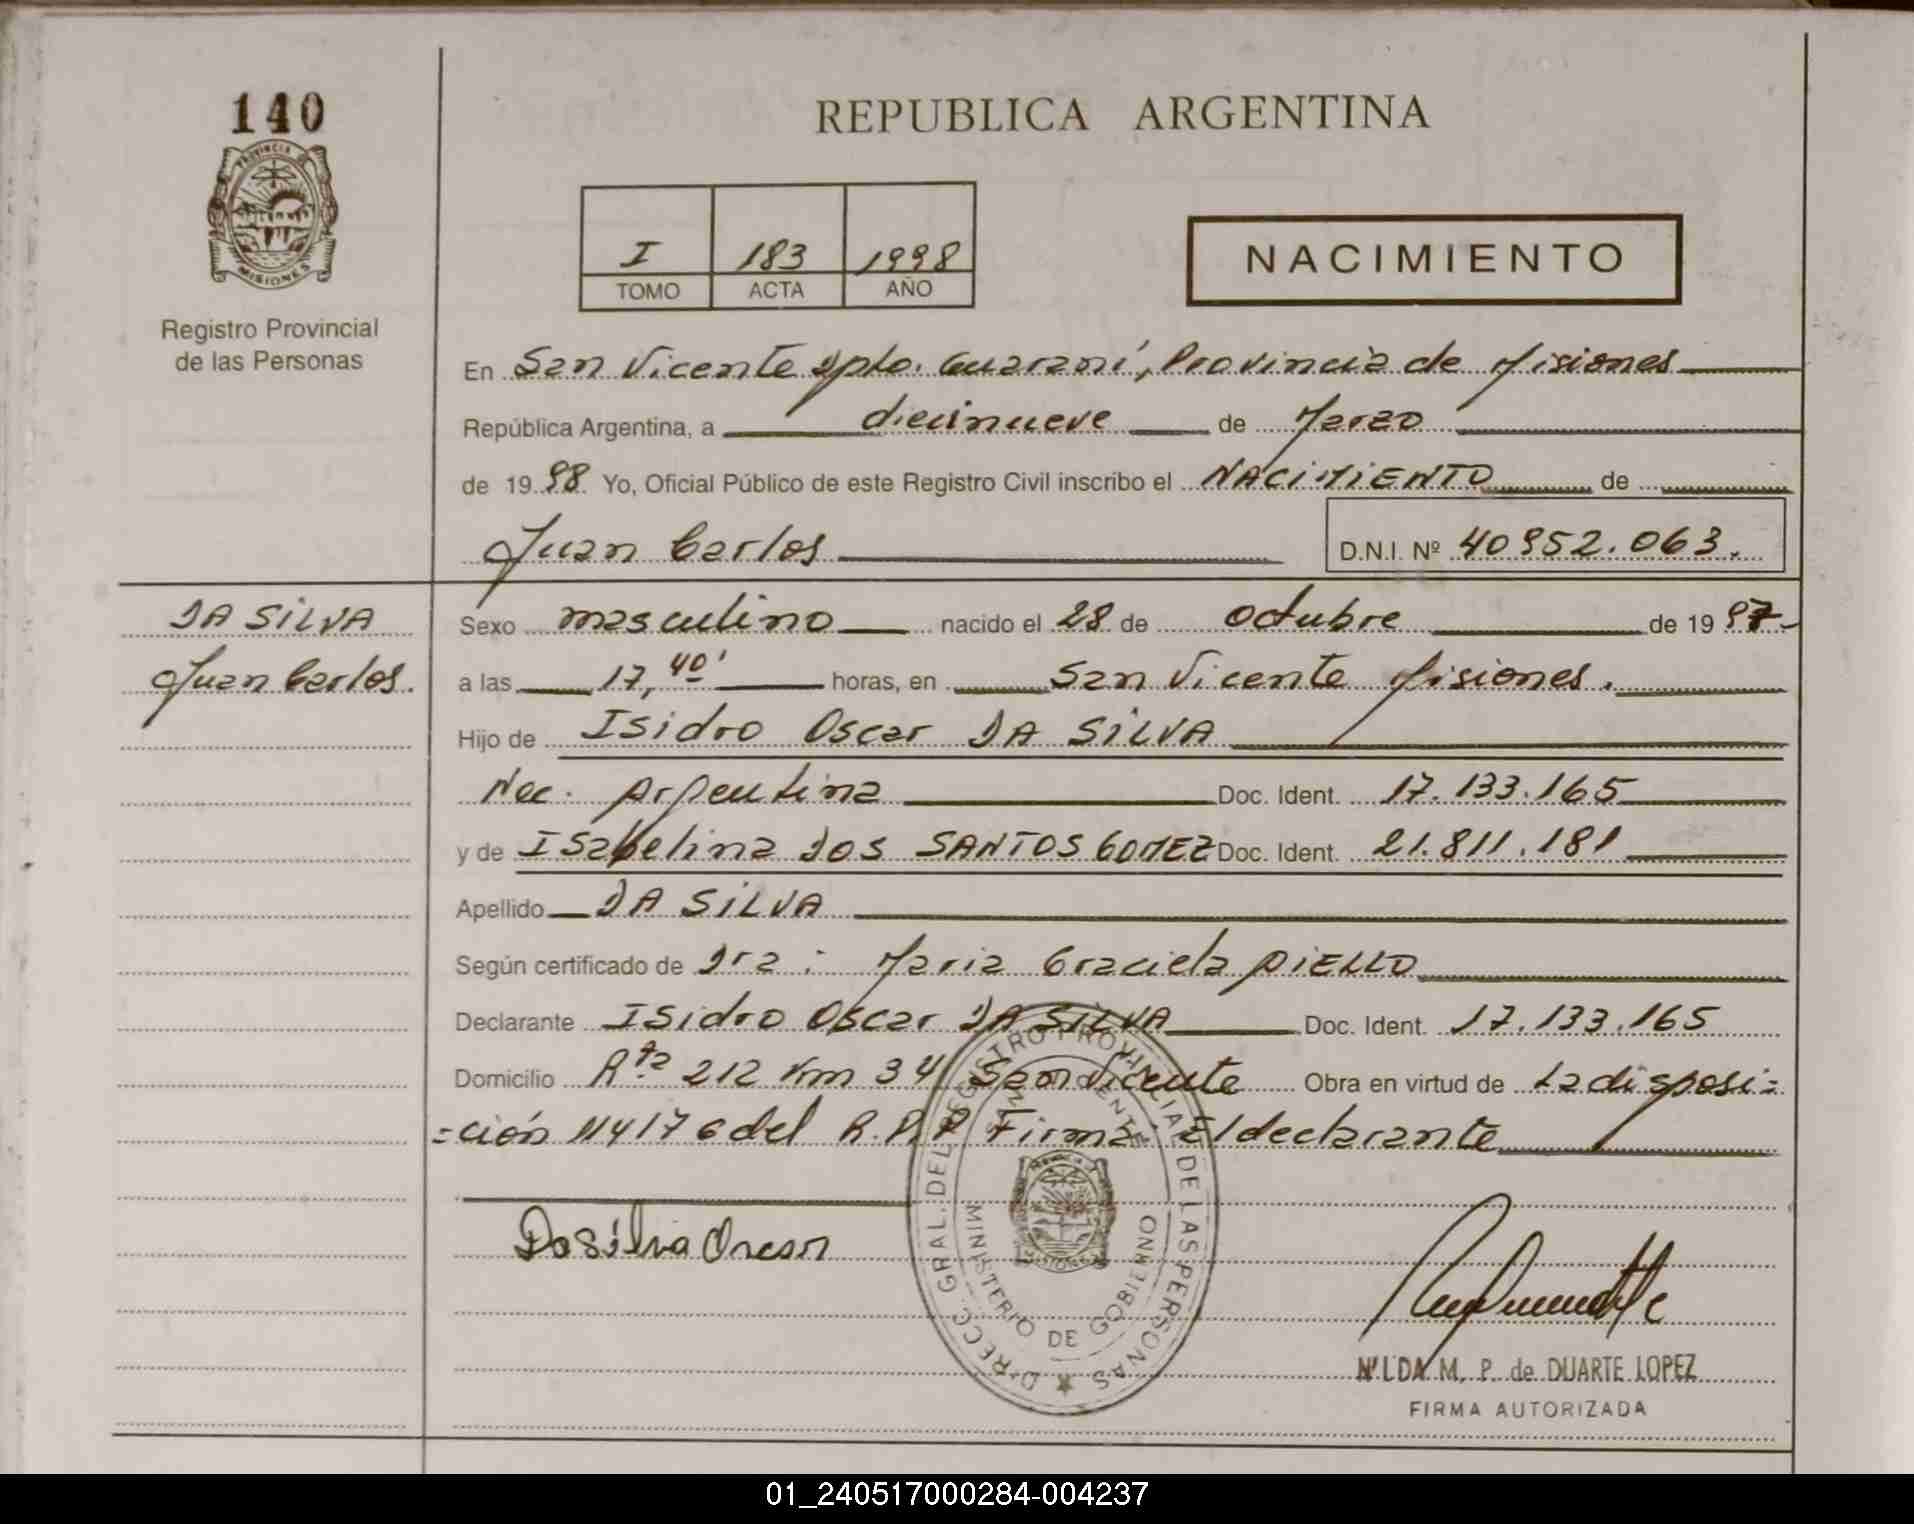 140
PROVINCIA DE
MISIONES
Registro Provincial
de las Personas
REPUBLICA ARGENTINA
I 183 1998
TOMO ACTA AÑO
NACIMIENTO
En San Vicente Dpto. Guaraní, Provincia de Misiones
República Argentina, a diecinueve de Marzo
de 1998 Yo, Oficial Público de este Registro Civil inscribo el NACIMIENTO de
Juan Carlos D.N.I. Nº 40952.063.
DA SILVA
Juan Carlos.
Sexo masculino nacido el 28 de Octubre de 1997-
a las 17,40' horas, en San Vicente Misiones.
Hijo de Isidro Oscar DA SILVA
Nac. Argentina Doc. Ident. 17.133.165
y de Isabelina DOS SANTOS GOMEZ Doc. Ident. 21.811.181
Apellido DA SILVA
Según certificado de Dra: Maria Graciela DIELLO
Declarante Isidro Oscar DA SILVA Doc. Ident. 17.133.165
Domicilio Rta 212 Km 34 San Vicente Obra en virtud de La disposi=
=ción Nº 176 del R.P.P Firma: El declarante
DIRECC. GRAL. DEL REGISTRO PROVINCIAL DE LAS PERSONAS
SAN VICENTE
MINISTERIO DE GOBIERNO
MISIONES
Dasilva Oscar
NILDA M. P. de DUARTE LOPEZ
FIRMA AUTORIZADA
01_240517000284-004237